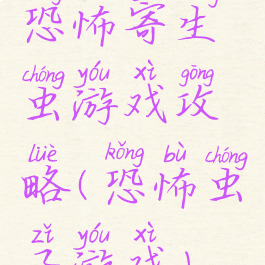 恐怖寄生
chóng yóu xì gōng
虫游戏攻
lüè kǒng bù chóng
略(恐怖虫
zǐ yóu xì
子游戏)